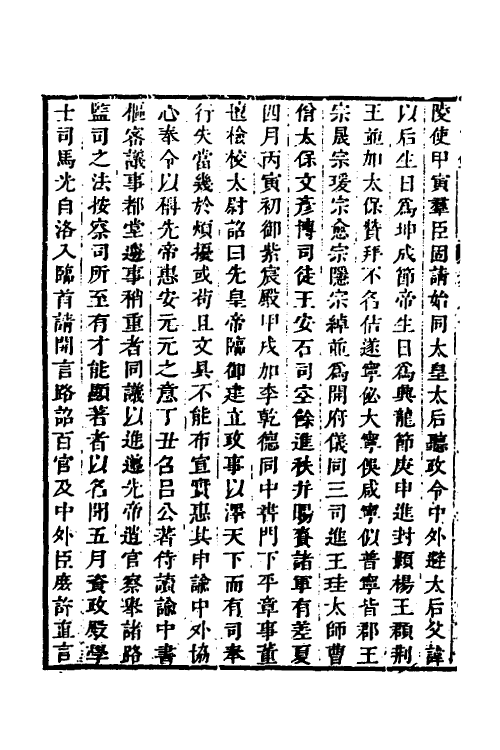 陵使甲寅羣臣固請始同太皇太后聽政令中外避太后父諱
以后生日爲坤成節帝生日爲興龍節庚申進封顥楊王頵荆
王並加太保贊拜不名佶遂寧佖大寧俁咸寧似普寧皆郡王
宗晟宗瑗宗愈宗隱宗綽並爲開府儀同三司進王珪太師曹
佾太保文彥博司徒王安石司空餘進秩并賜賚諸軍有差夏
四月丙寅初御紫宸殿甲戌加李乾德同中書門下平章事董
氊檢校太尉詔曰先皇帝臨御建立政事以澤天下而有司奉
行失當幾於煩擾或苟且文具不能布宣實惠其申諭中外協
心奉令以稱先帝惠安元元之意丁丑召呂公著侍讀諭中書
樞密議事都堂邊事稍重者同議以進遵先帝遺官察舉諸路
監司之法按察司所至有才能顯著者以名聞五月資政殿學
士司馬光自洛入臨首請開言路詔百官及中外臣庶許直言